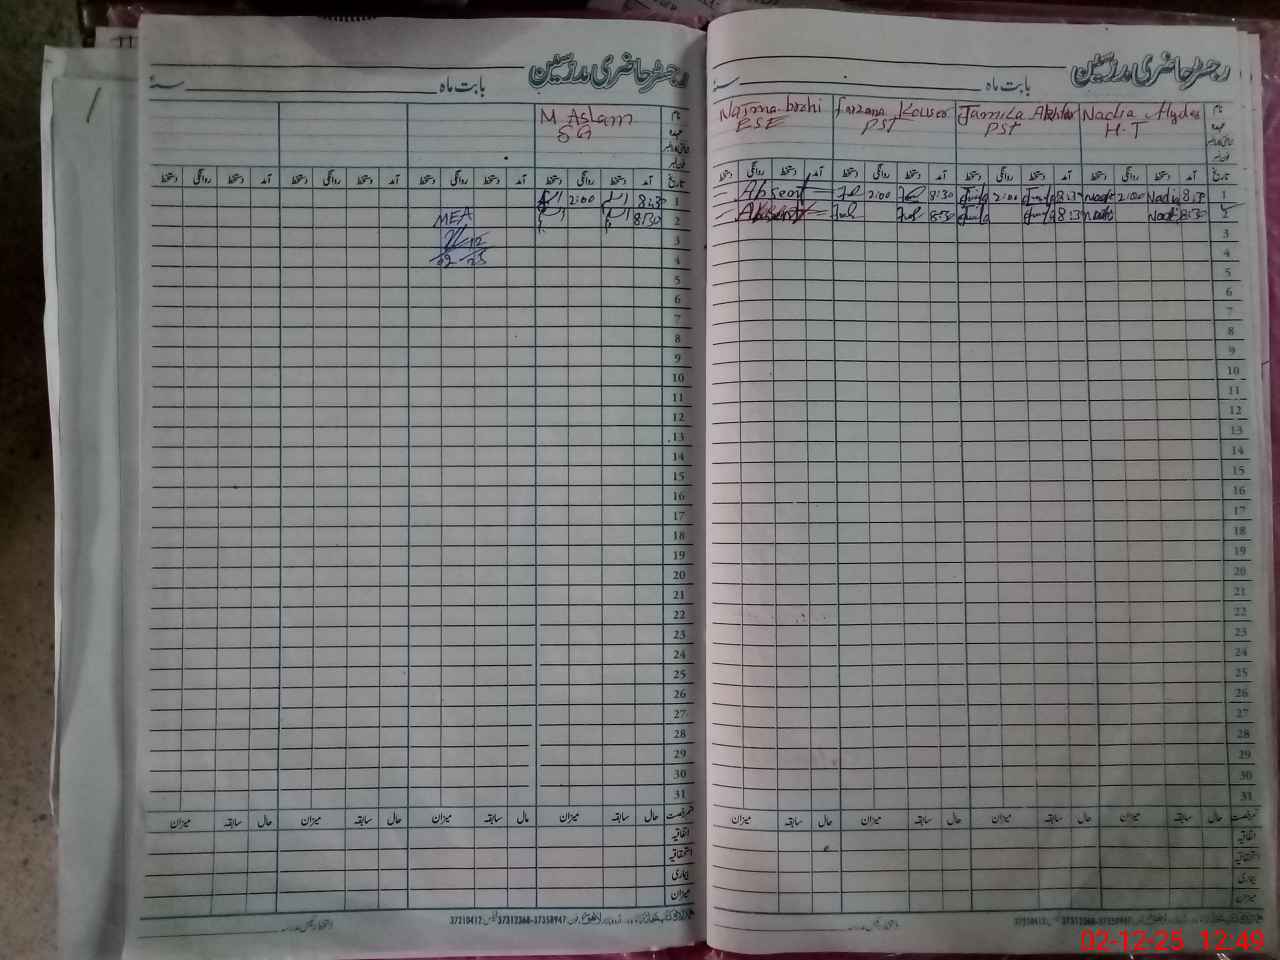 رجسٹر حاضری مدرسین
بابت ماہ
نام
عہدہ
Nadia Hyder
H.T
Jamila Akhtar
PST
Farzana Kouser
PST
Najma bibi
ESE
تاریخ آمد دستخط روانگی دستخط آمد دستخط روانگی دستخط آمد دستخط روانگی دستخط آمد دستخط روانگی دستخط
1 8:30 Nadia 2:00 Nadia 8:30 Jamila 2:00 Jamila 8:30 2:00 Absent
2 8:30 Nadia Nadia 8:30 Jamila Jamila 8:30 Absent
3
4
5
6
7
8
9
10
11
12
13
14
15
16
17
18
19
20
21
22
23
24
25
26
27
28
29
30
31
حال سابقہ میزان حال سابقہ میزان حال سابقہ میزان حال سابقہ میزان
اتفاقیہ
استحقاقیہ
بیماری
میزان
37310412 37312368-37358947
رجسٹر حاضری مدرسین
بابت ماہ
M Aslam
تاریخ آمد دستخط روانگی دستخط آمد دستخط روانگی دستخط آمد دستخط روانگی دستخط آمد دستخط روانگی دستخط
1 8:30 2:00
2 8:30 MEA
3
4
5
6
7
8
9
10
11
12
13
14
15
16
17
18
19
20
21
22
23
24
25
26
27
28
29
30
31
حال سابقہ میزان حال سابقہ میزان حال سابقہ میزان حال سابقہ میزان
اتفاقیہ
استحقاقیہ
بیماری
میزان
37310412 37312368-37358947
02-12-25 12:49